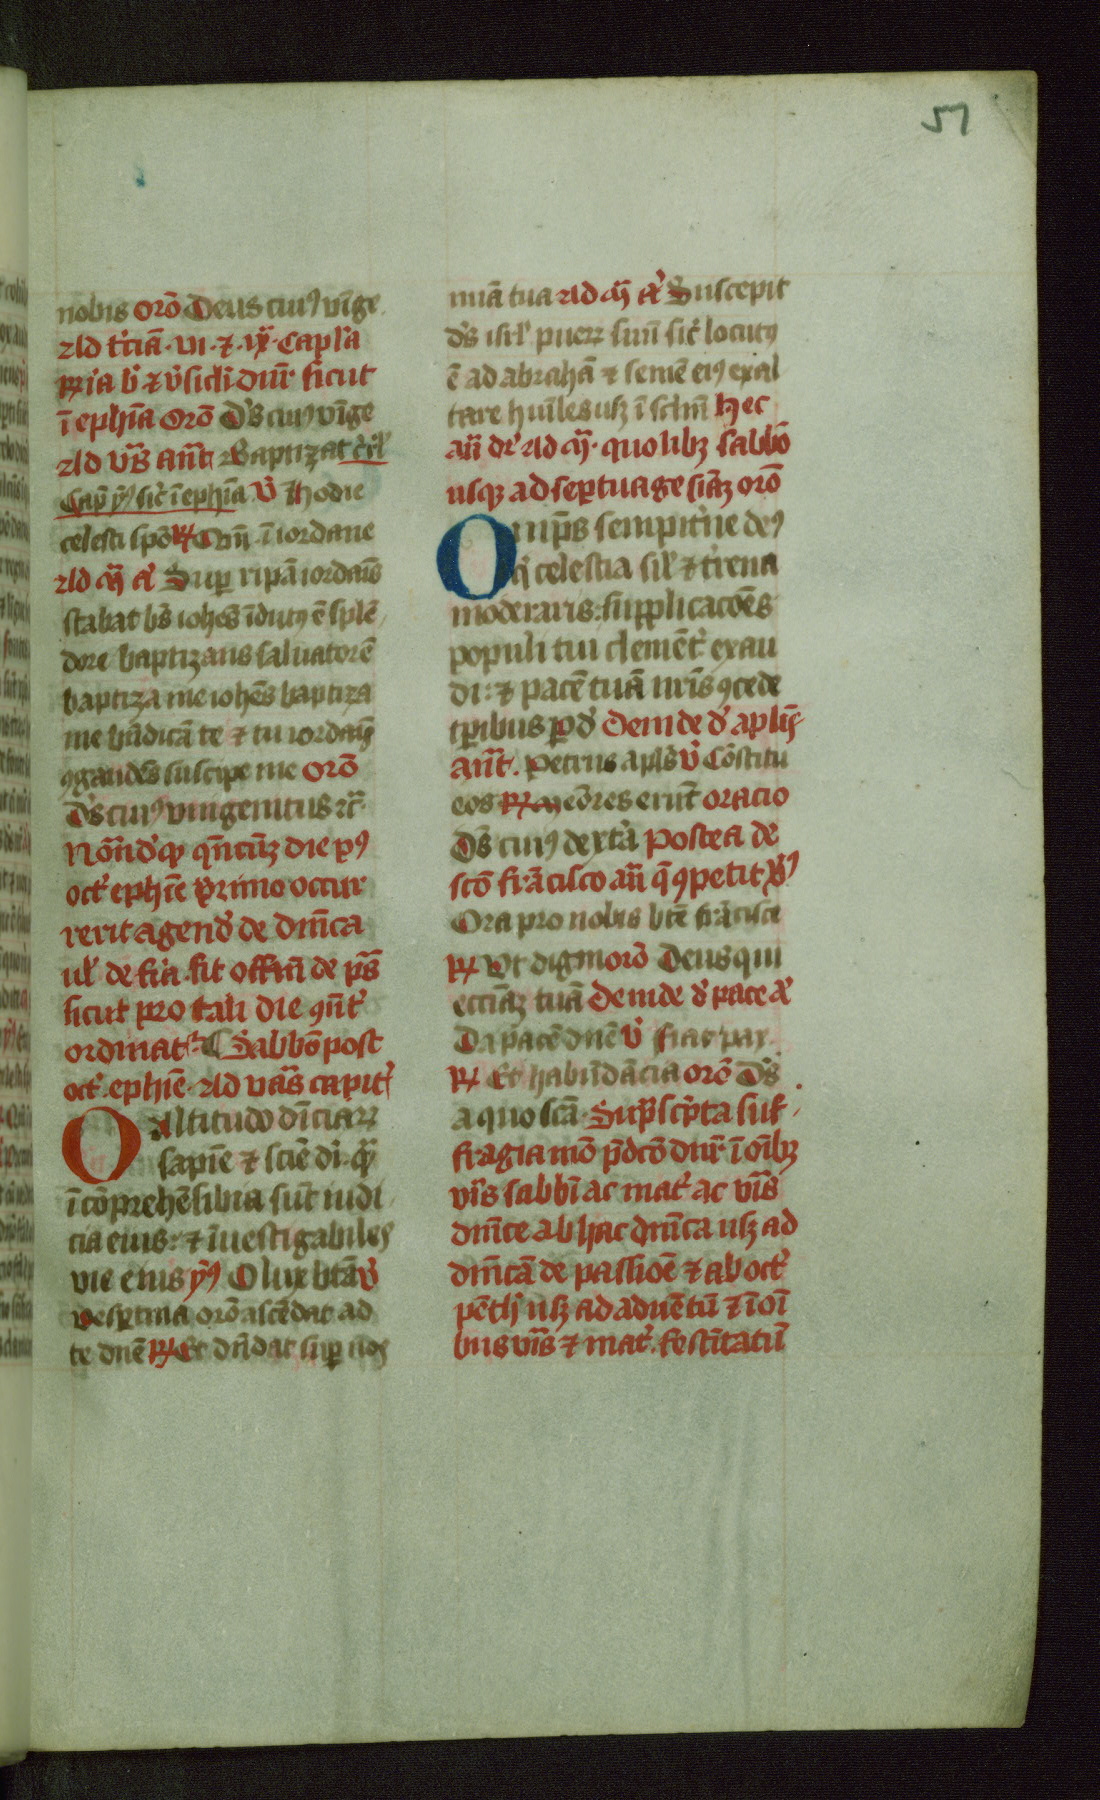 51
nobis orō Deus cuiꝰ vnīge
Ad t'ciā · vi · ⁊ · ix · capl'a
ʀria b' ⁊ v'siclī diūr sicut
ī ephīa orō Ds̄ cuiꝰ vnīge
Ad vr̄s ant̄ Baptizat
Cap̄ sic̄ ī ephīa v̄ Hodie
celesti spō ℟ Cuī ī iordane
Ad m̄ a' Sup ripā iordaīs
stabat bt̄s iohēs īdutꝰ ē splē
dore baptizans saluatorē
baptiza me iohēs baptiza
me bn̄dicā te ⁊ tu iordaīs
ꝯgaudēs suscipe me orō
Ds̄ cuiꝰ vnigenitus rc̄
Nōnd' qꝫ die pꝰ
oct' ephīe primo occur
rerit agend' de dnīca
ul' de fīa fit offm̄ de ps̄
sicut pro tali die
ordinat Sabbō post
oct' ephīe Ad vr̄as capit'
O Altitudo diuīciarꝝ
sapīe ⁊ sciē di · qͣ
ī cōprehēsibīa sūt iudi
cia eius : ⁊ īuestigabiles
vie eius yꝰ O lux btā v̄
vespertina orō ascēdat ad
te dnē ℟ Et dn̄dat sup nos
mīa tua Ad m̄ a' Suscepit
ds̄ isrl' puerꝝ suū sic̄ locutꝰ
ē ad abrahā ⁊ semē eiꝰ exal
tare huīles usꝫ ī sclm̄ hec
an̄ dr̄ Ad m̄ · quolibꝫ sabbō
usqꝫ ad septuagesiāꝫ orō
Omp̄s sempit'ne deꝰ
q' celestia sil' ⁊ t'rena
moderaris : supplicacōes
populi tui clemēt' exau
di : ⁊ pacē tuā nrīs ꝯcede
tp̄ribus p d' Deinde d' aplīs
ant̄ . Petrus apls̄ v̄ Cōstitu
eos ℟ Meōres erūt oracio
Ds̄ cuiꝰ dext'a Postea de
scō frācisco an̄ q̄ ꝯpetit
Ora pro nobis btē frācisce
℟ Vt digni orō Deus qui
ecciāꝫ tuā Deinde d' pace a'
Da pacē dnē v̄ Fiat pax
℟ Et habūdācia orō Ds̄
a quo scā · Supscpta suf
fragia mō p̄dcō dn̄r ī oībꝫ
vr̄is sabbī ac mat' ac vr̄is
dnīce ab hac dnīca usꝫ ad
dnīcā de passiōe ⁊ ab oct'
pēth usꝫ ad aduētū ⁊ ī oī
bus vr̄is ⁊ mat' . festītatū